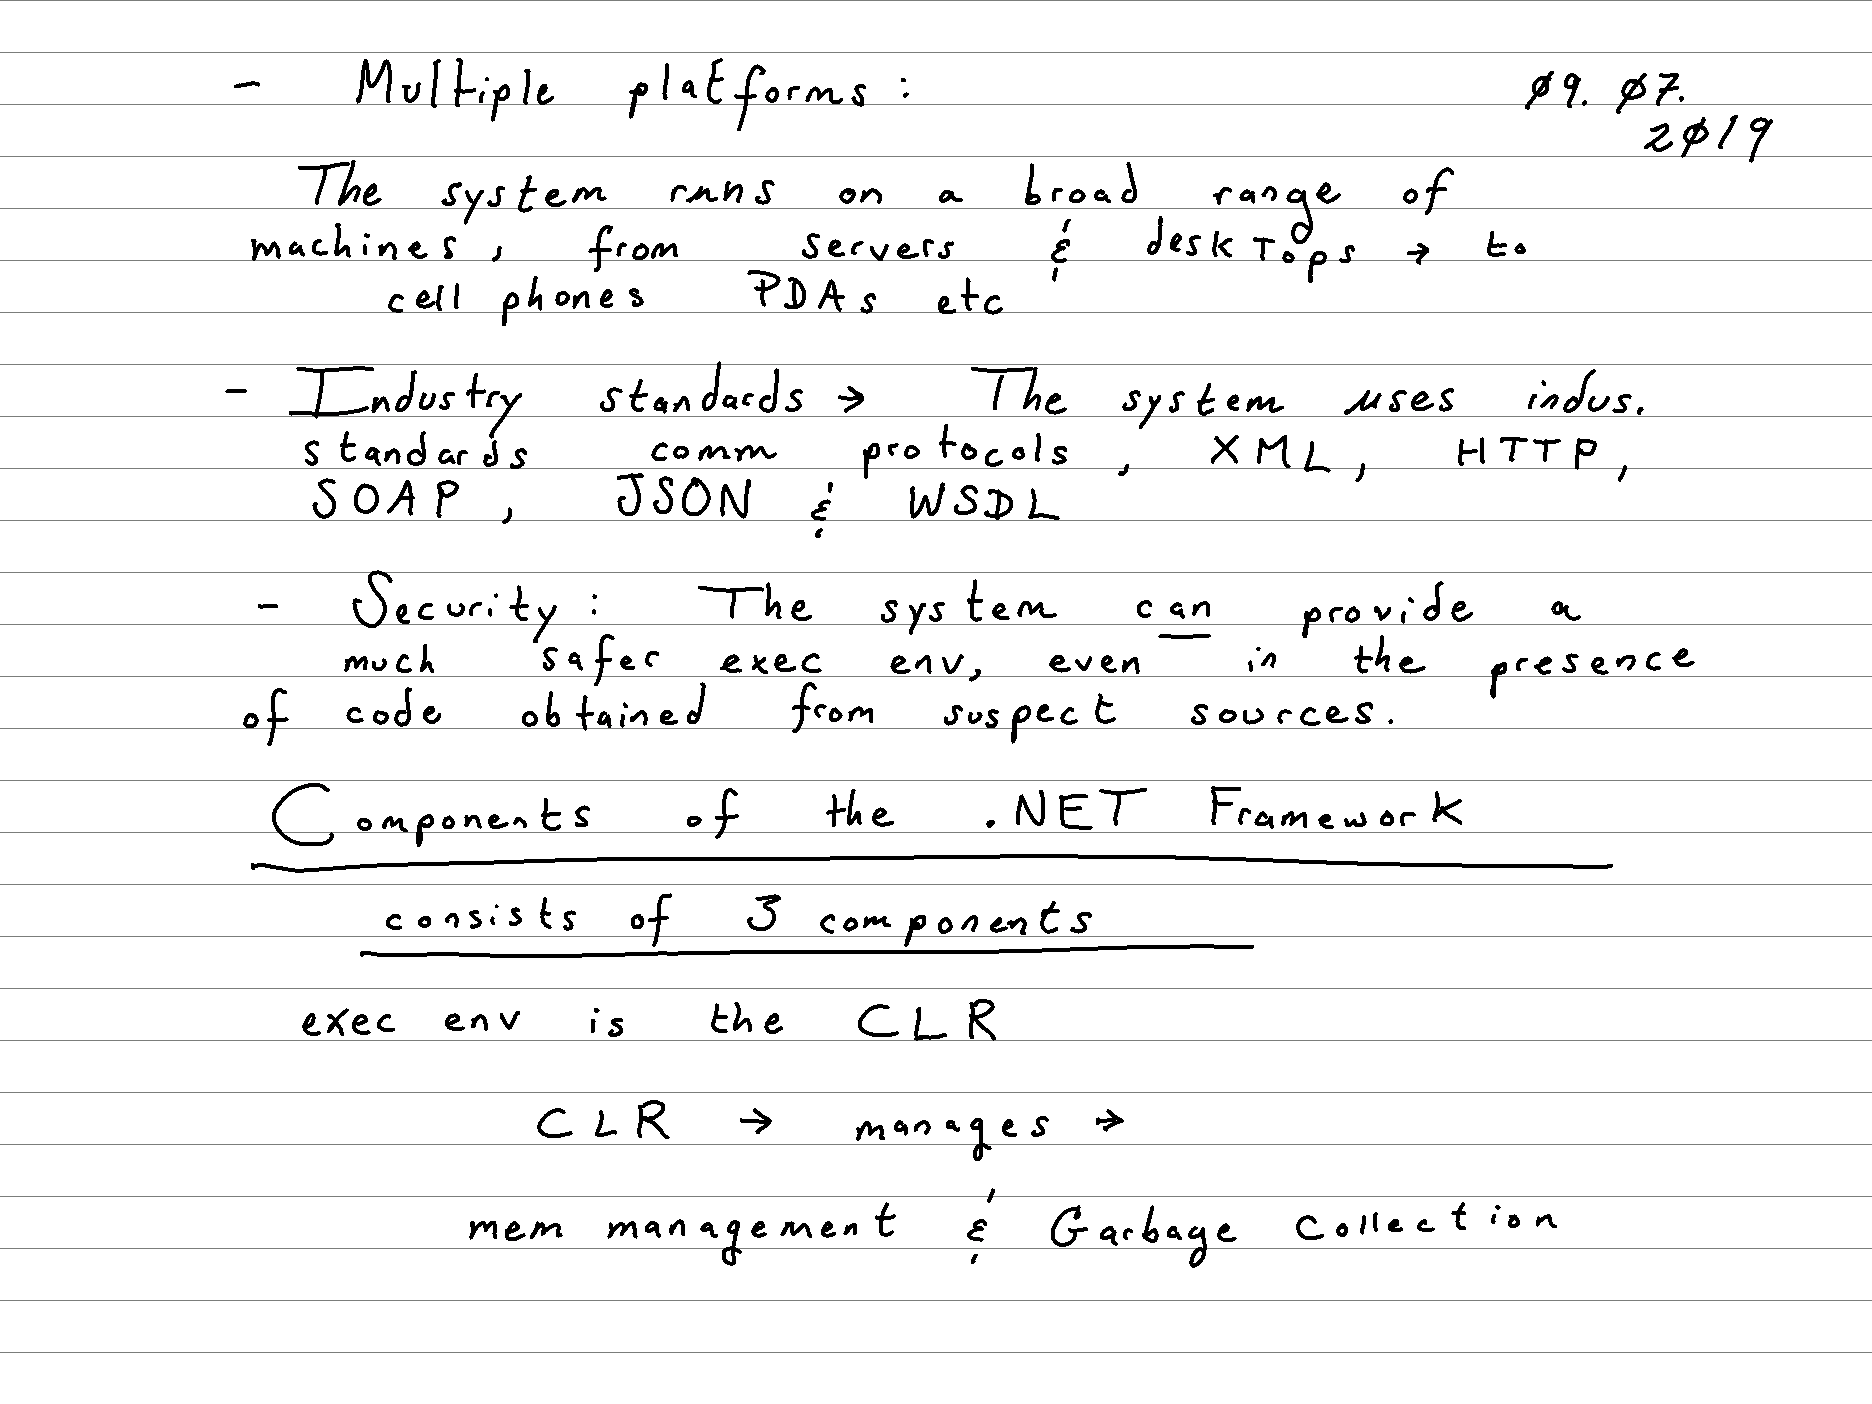 - Multiple platforms:
ø9. ø7.
2ø19
The system runs on a broad range of
machines, from servers & desktops → to
cell phones PDAs etc
- Industry standards → The system uses indus.
standards comm protocols, XML, HTTP,
SOAP, JSON & WSDL
- Security: The system can provide a
much safer exec env, even in the presence
of code obtained from suspect sources.
Components of the .NET Framework
consists of 3 components
exec env is the CLR
CLR → manages →
mem management & Garbage Collection